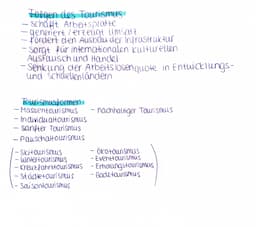 Folgen des Tourismus
- schafft Arbeitsplätze
- generiert / erzeugt Umsatz
- fördert den Ausbau der Infrastruktur
- sorgt für internationalen kulturellen
Austausch und Handel
- Senkung der Arbeitslosenquote in Entwicklungs-
und Schwellenländern
Tourismusformen
- Massentourismus
- nachhaltiger Tourismus
- Individualtourismus
- sanfter Tourismus
- Pauschaltourismus
- Skitourismus
- Ökotourismus
- Wintertourismus
- Eventtourismus
- Kreuzfahrttourismus
- Erholungstourismus
- Städtetourismus
- Badetourismus
- Saisontourismus